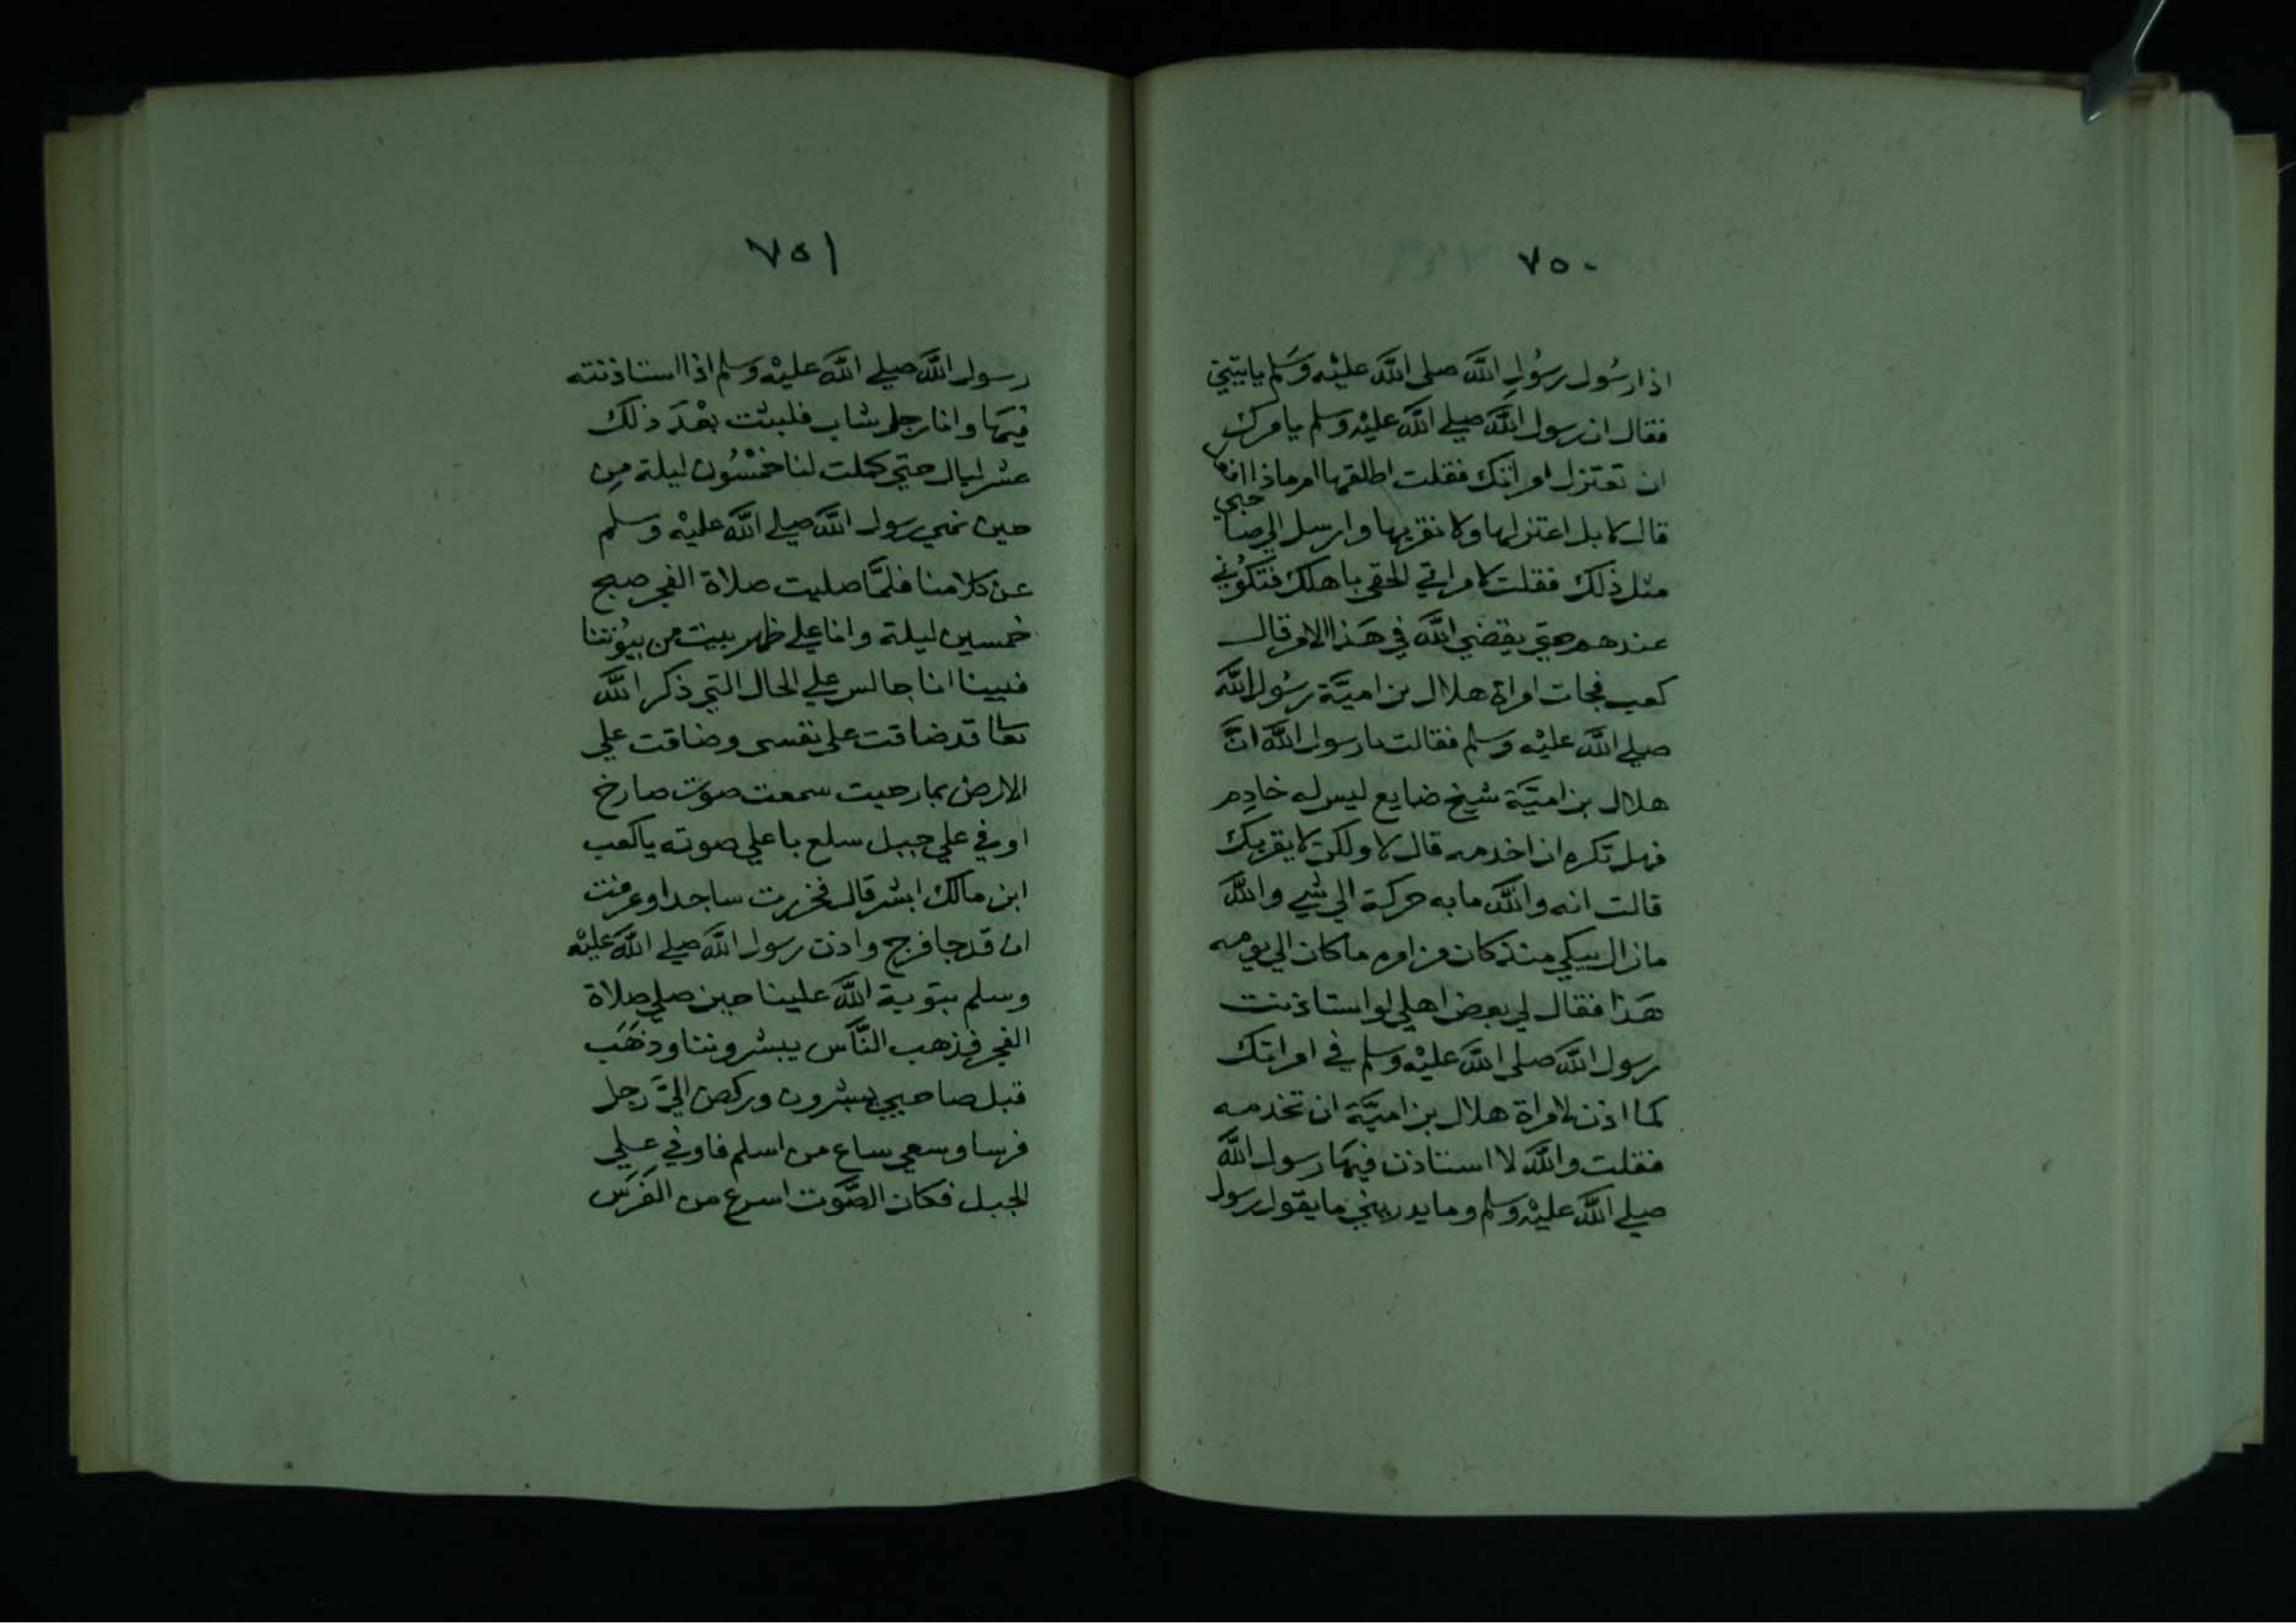 ٧٥٠
اذا رسُول رسُولِ اللَّه صلى اللَّه عليْه وسَلم ياتيني
فقال ان رسول اللَّه صلي اللَّه عليْه وسلم يامرك
ان تعتزل امراتك فقلت اطلقها امر ماذا افعل
قال لا بل اعتزلها ولا تقربها وارسل الي صاحبي
مثل ذلك فقلت لامراتي الحقي باهلك فتكُوني
عندهم حتي يقضي اللَّه في هَذا الامر قال
كعب فجات امراة هلال بن اميَّة رسُول اللَّه
صلي اللَّه عليْه وسلم فقالت يا رسول اللَّه انَّ
هلال بن اميَّة شيخ ضايع ليس له خادِم
فهل تكره ان اخدمه قال لا ولكن لا يقربك
قالت انه واللَّه ما به حركة الي شي واللَّه
ما زال يبكي منذ كان من امره ما كان الي يومه
هَذا فقال لي بعض اهلي لو استاذنت
رسول اللَّه صلى اللَّه عليْه وسلم في امراتك
كما اذن لامراة هلال بن اميَّة ان تخدمه
فقلت واللَّه لا استاذن فيهَا رسول اللَّه
صلي اللَّه عليْه وسلم وما يدريني ما يقول رسول
٧٥١
رسول اللَّه صلي اللَّه عليْه وسلم اذا استاذنته
فيهَا وانا رجل شاب فلبثت بعْدَ ذلك
عشر ليال حتي كملت لنا خمْسُون ليلة مِن
حين نهي رسول اللَّه صلي اللَّه عليْه وسلم
عن كلامنا فلمَّا صليت صلاة الفجر صبح
خمسين ليلة وانا علي ظهر بيت من بيُوتنا
فبينا انا جالس علي الحال التي ذكر اللَّه
تعا قد ضاقت علي نفسي وضاقت علي
الارض بما رحبت سمعت صوت صارخ
اوفي علي جبل سلع باعلي صوته يا كعب
ابن مالك ابشر قال فخررت ساجدا وعرفت
ان قد جا فرج واذن رسول اللَّه صلي اللَّه عليْه
وسلم بتوبة اللَّه علينا حين صلي صلاة
الفجر فذهب النَّاس يبشروننا وذهَب
قبل صاحبي مبشرون وركض اليَّ رجل
فرسا وسعي ساع من اسلم فاوفي علي
الجبل فكان الصَّوت اسرع من الفَرَس